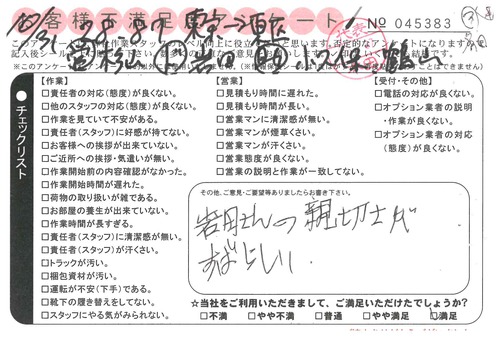 お客様
№ 045383
チェックリスト
【作業】
□責任者の対応(態度)が良くない。
□他のスタッフの対応(態度)が良くない。
□作業を見ていて不安がある。
□責任者(スタッフ)に好感が持てない。
□お客様への挨拶が出来ていない。
□ご近所への挨拶・気遣いが無い。
□作業開始前の内容確認がなかった。
□作業開始時間が遅れた。
□荷物の取り扱いが雑である。
□お部屋の養生が出来ていない。
□作業時間が長すぎる。
□責任者(スタッフ)に清潔感が無い。
□責任者(スタッフ)が汗くさい。
□トラックが汚い。
□梱包資材が汚い。
□運転が不安(下手)である。
□靴下の履き替えをしてない。
□スタッフにやる気がみられない。
【営業】
□見積もり時間に遅れた。
□見積もり時間が長い。
□営業マンに清潔感が無い。
□営業マンが煙草くさい。
□営業マンが汗くさい。
□営業態度が良くない。
□営業の説明と作業が一致してない。
【受付・その他】
□電話の対応が良くない。
□オプション業者の説明
・作業が良くない。
□オプション業者の対応
(態度)が良くない。
その他、ご意見・ご要望等ありましたらお書き下さい。
岩月さんの親切さが
すばらしい
☆当社をご利用いただきまして、ご満足いただけたでしょうか？
□不満 □やや不満 □普通 □やや満足 □満足